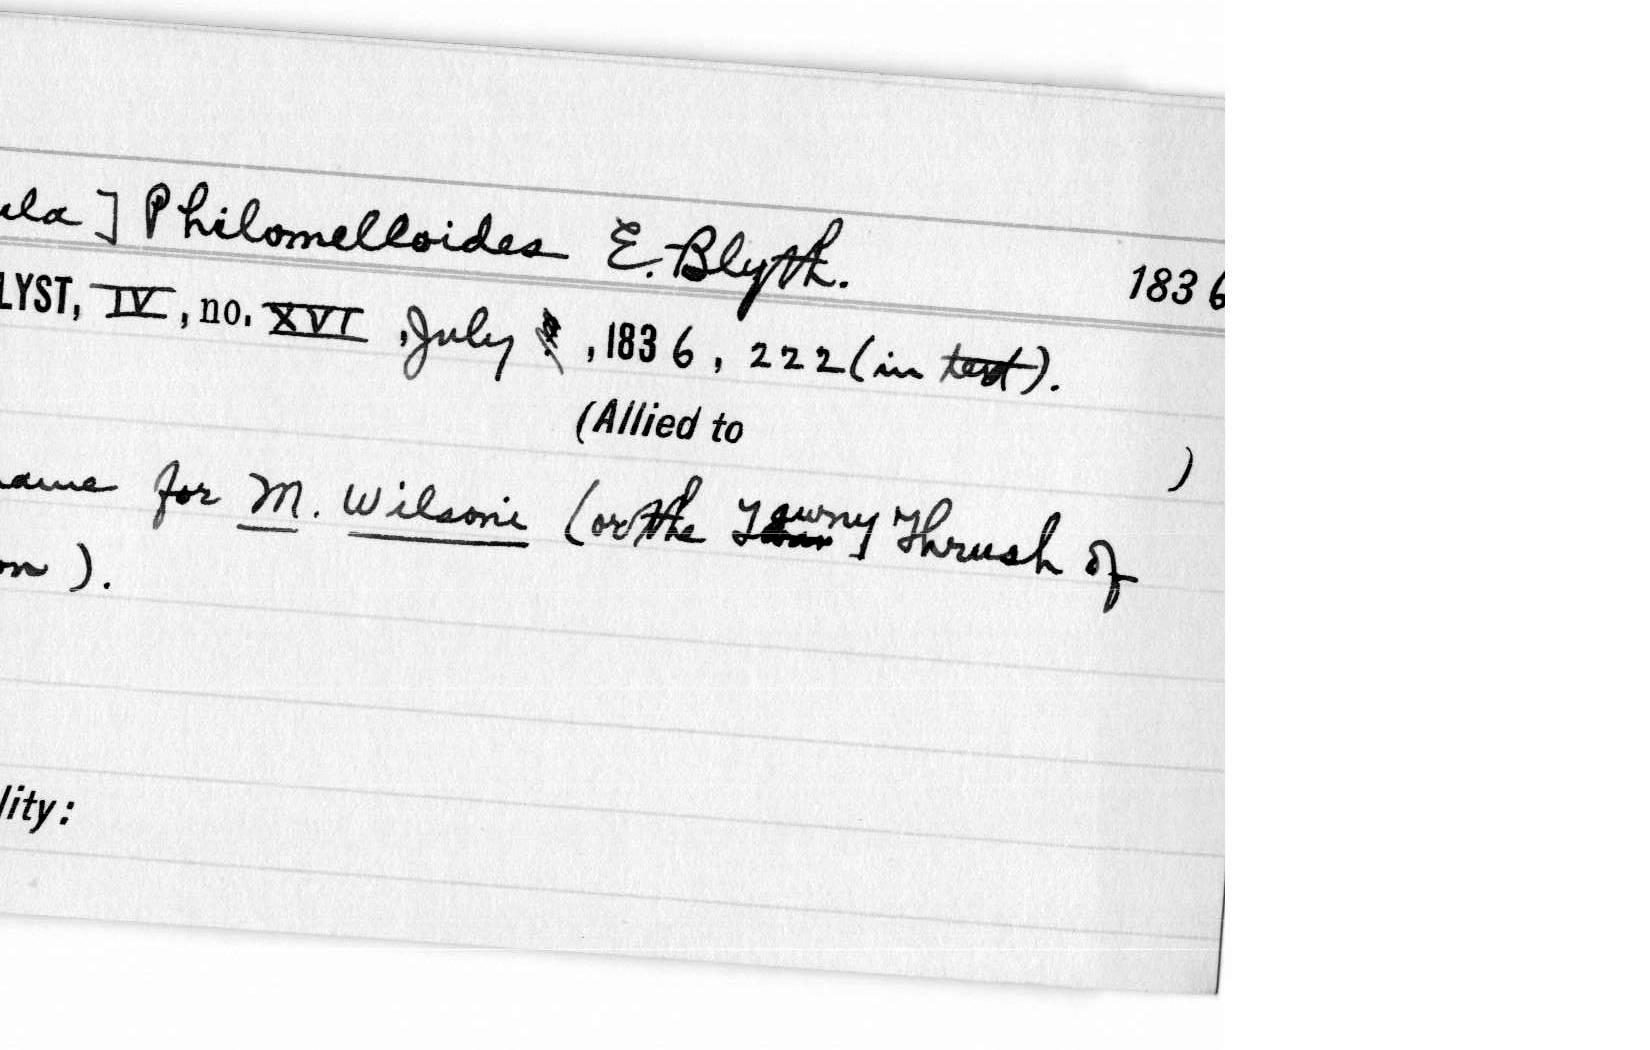 ula] Philomelloides E. Blyth. 1836
LYST, IV, no. XVI, July, 1836, 222 (in text).
(Allied to )
name for M. Wilsoni (or the Tawny Thrush of
on).
lity: